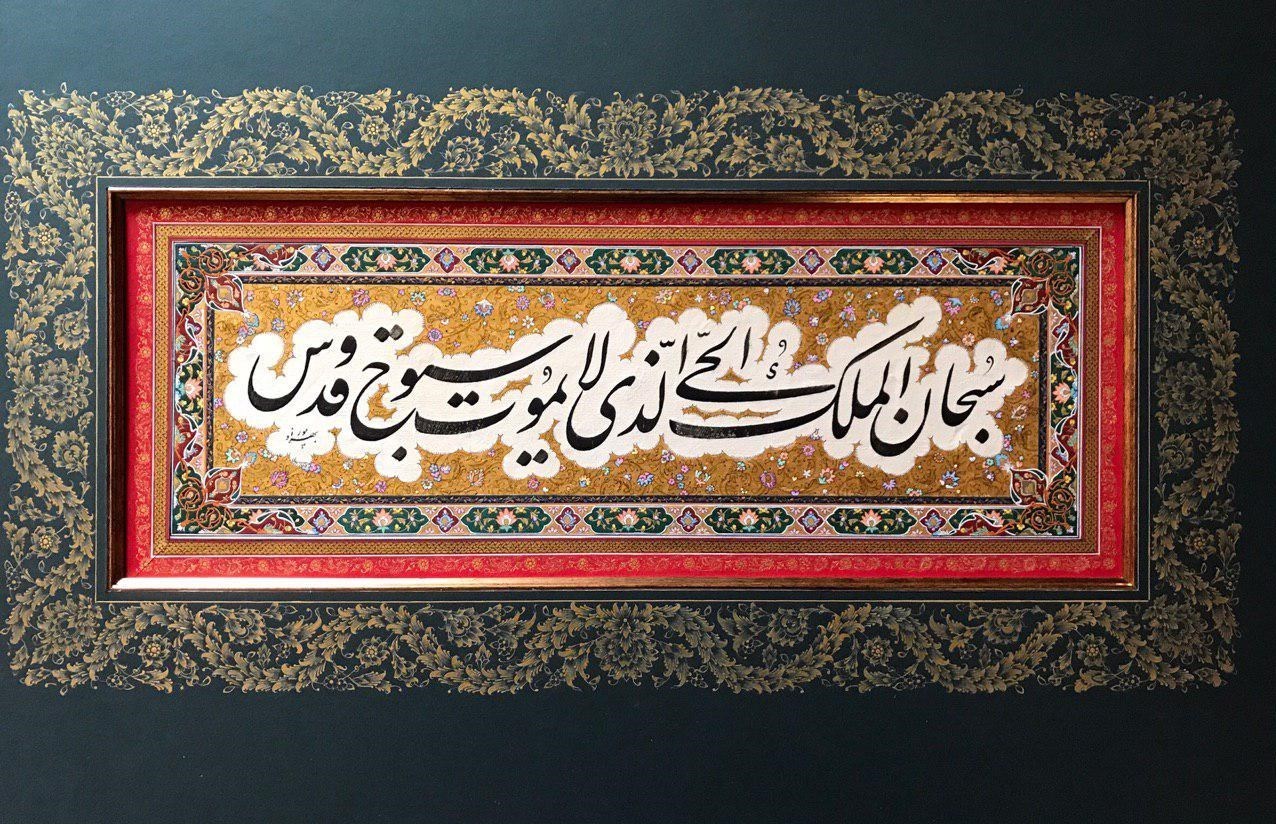 سُبحان الملک الحیّ الّذی لا یَموُت سبوح قدوس